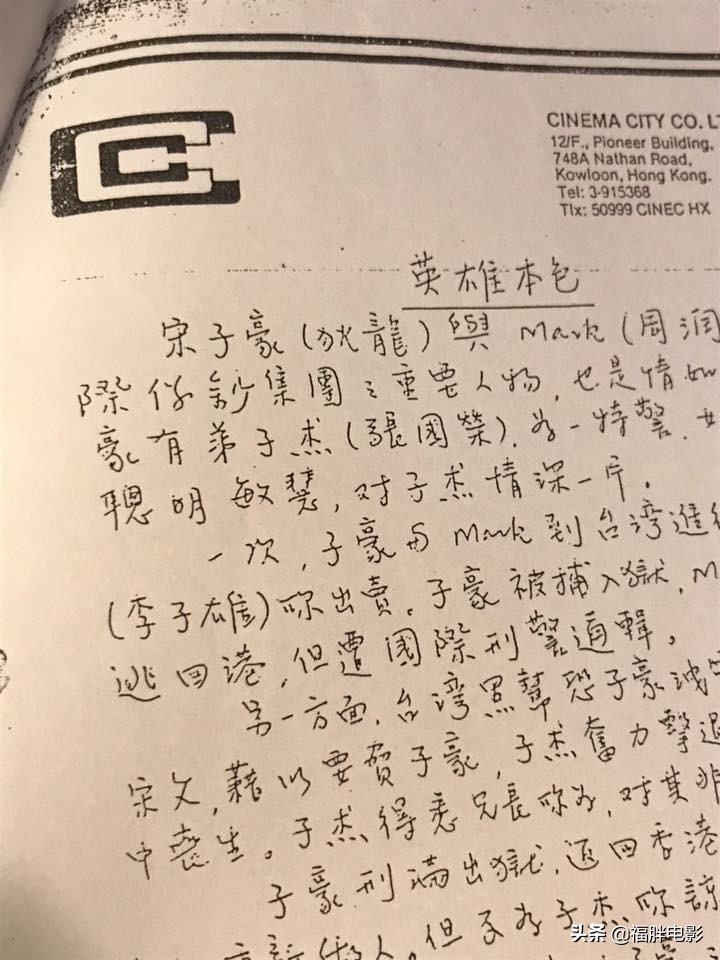 CINEMA CITY CO. LT
12/F., Pioneer Building,
748A Nathan Road,
Kowloon, Hong Kong.
Tel: 3-915368
Tlx: 50999 CINEC HX
英雄本色
宋子豪(狄龍)與 Mark (周润
際伪鈔集團之重要人物,也是情如
豪有弟子杰(張國榮),为一特警,女
聰明敏慧,对子杰情深一片。
一次,子豪与 Mark 到台湾進行
(李子雄)所出賣。子豪被捕入獄,M
逃回港,但遭國際刑警通輯。
另一方面,台湾黑幫恐子豪洩
宋父,藉以要脅子豪,子杰奮力擊退
中喪生。子杰得悉兄長所为,对其非
子豪刑滿出獄,返回香港
但不为子杰所諒
头条 @福胖电影